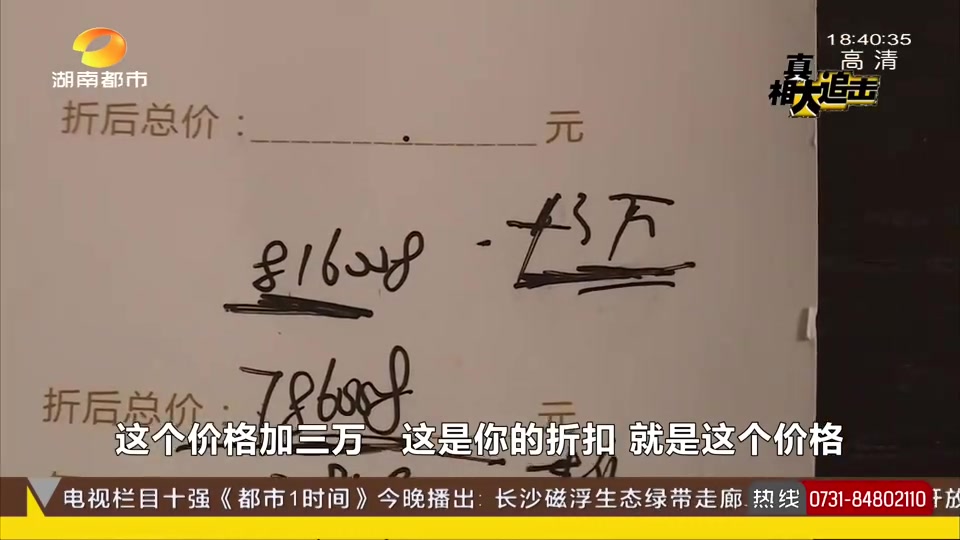 18:40:35
高清
湖南都市
真相大追击
折后总价：________元
816008 +3万
折后总价：786008元
这个价格加三万 这是你的折扣 就是这个价格
电视栏目十强《都市1时间》今晚播出: 长沙磁浮生态绿带走廊
热线 0731-84802110
开放